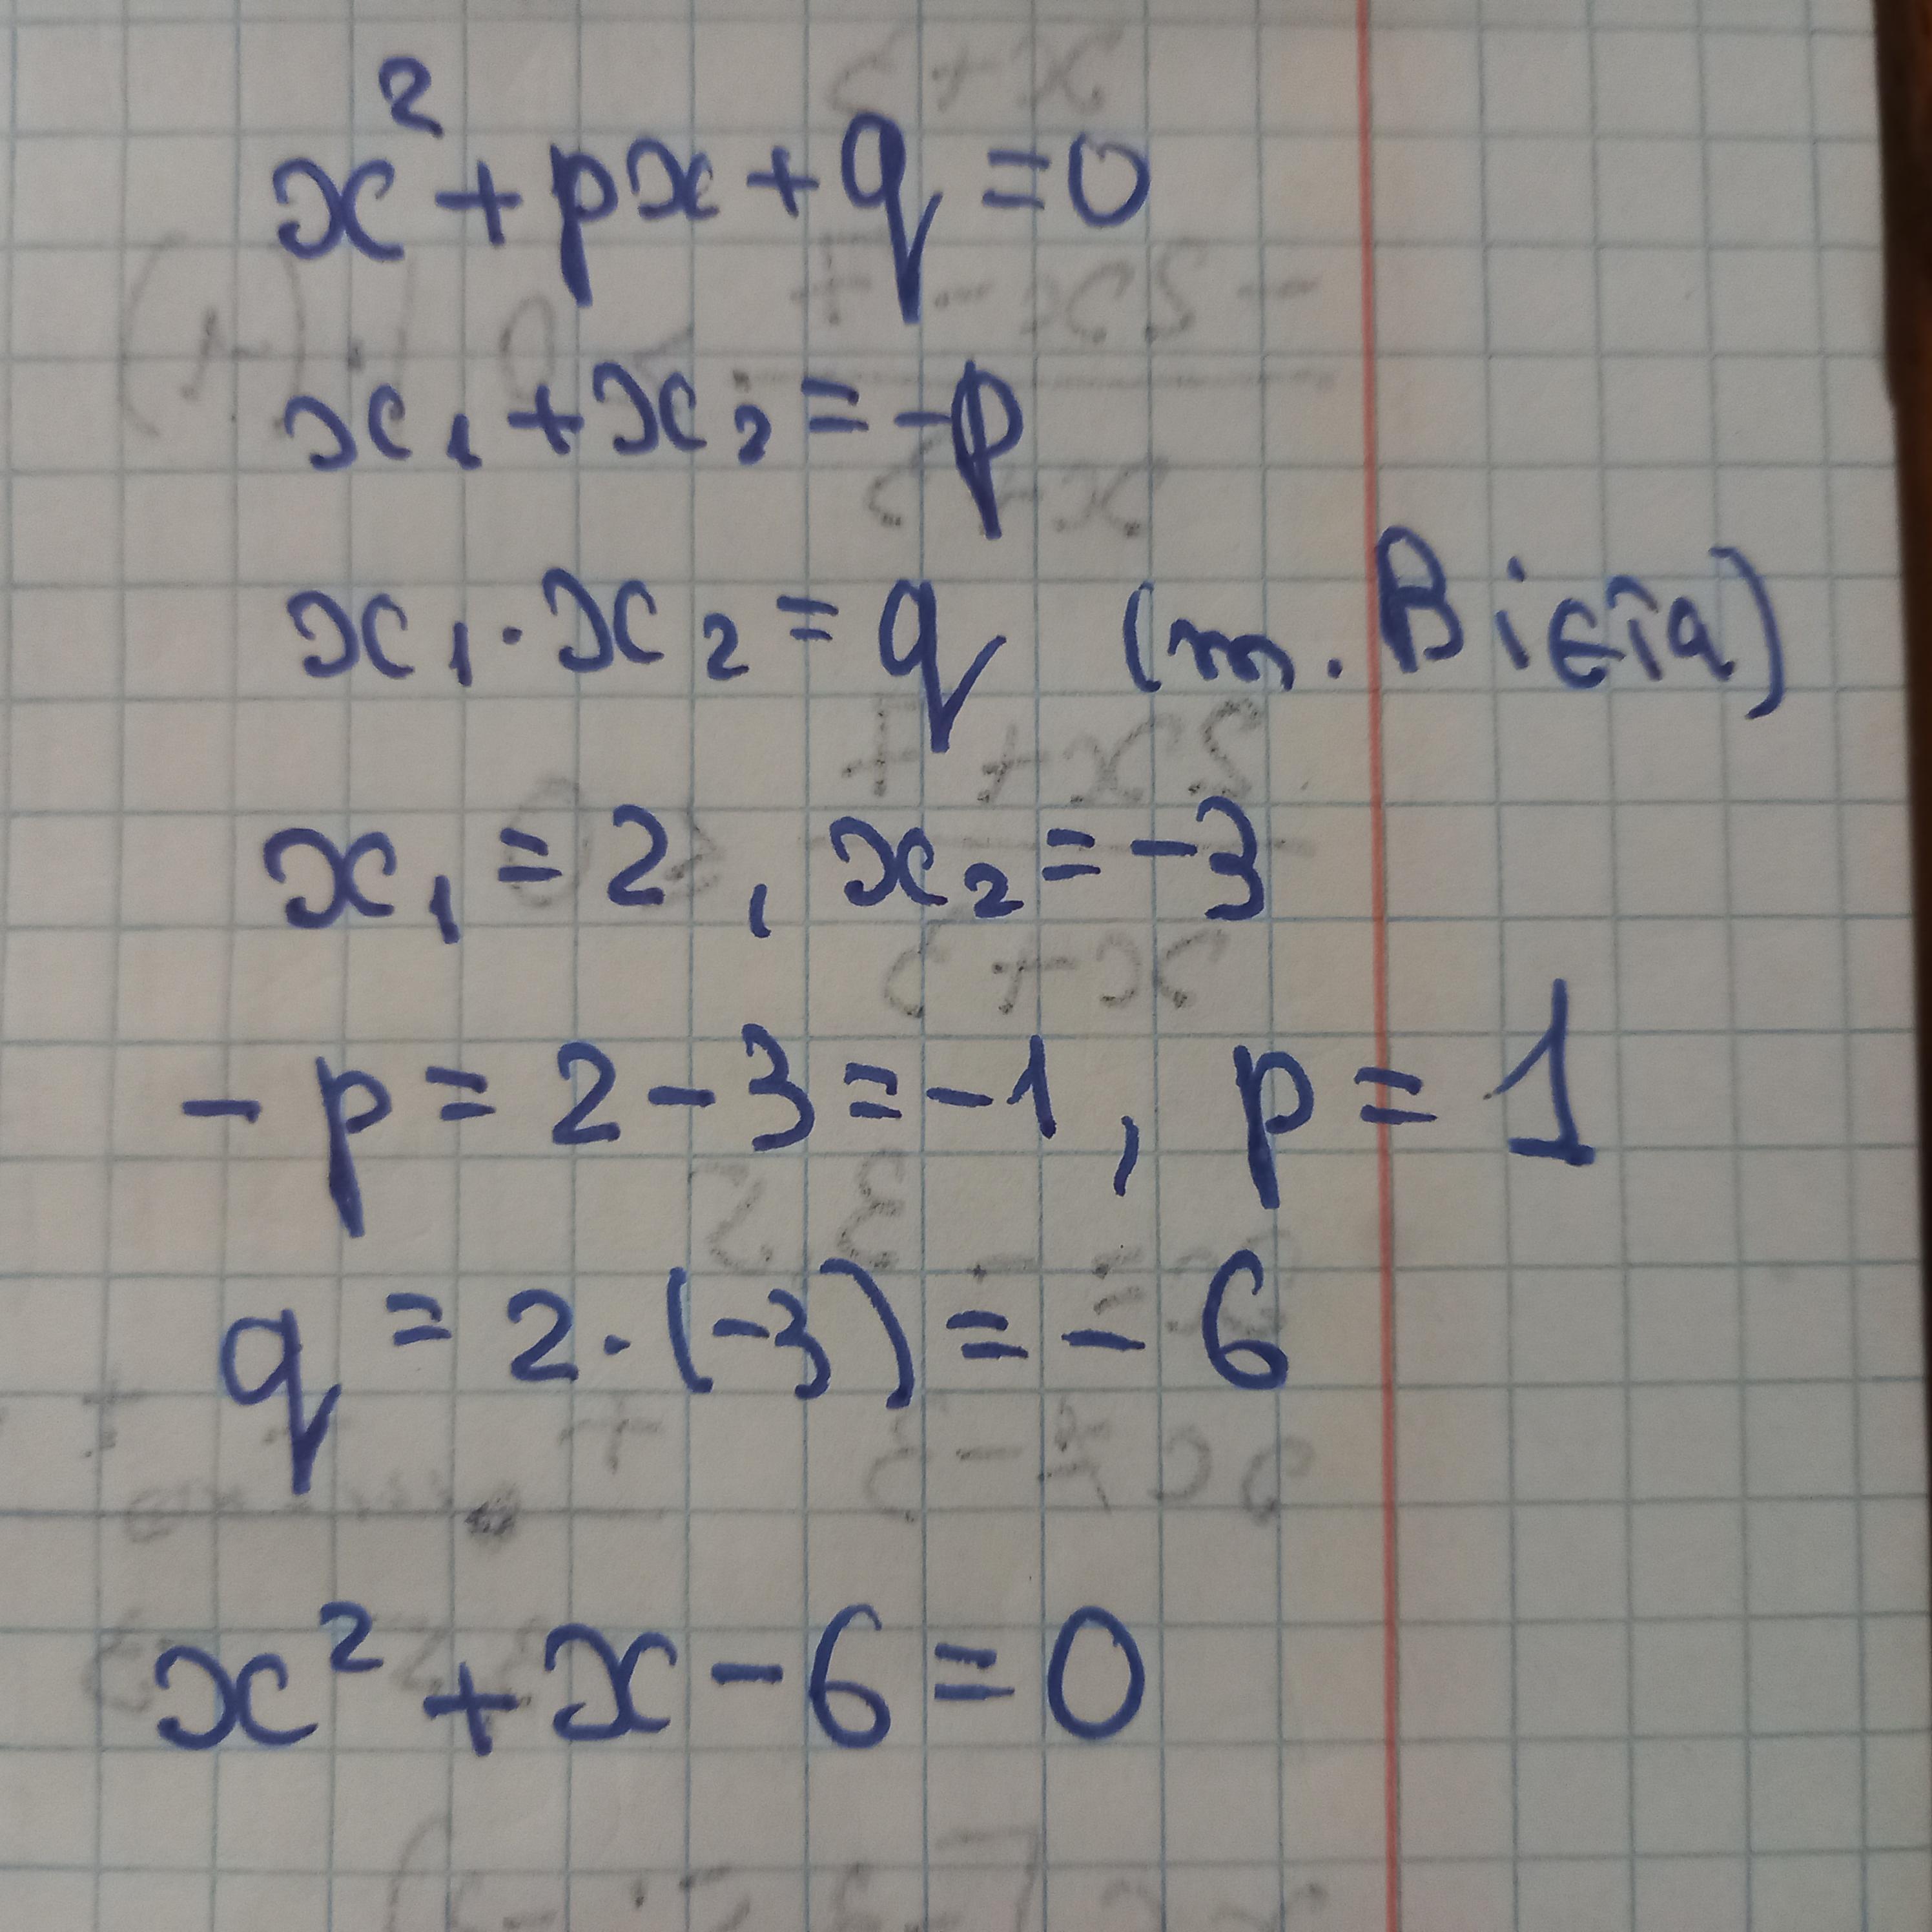 x² + px + q = 0
x₁ + x₂ = -p
x₁ · x₂ = q (т. Вієта)
x₁ = 2, x₂ = -3
- p = 2 - 3 = -1, p = 1
q = 2 · (-3) = - 6
x² + x - 6 = 0